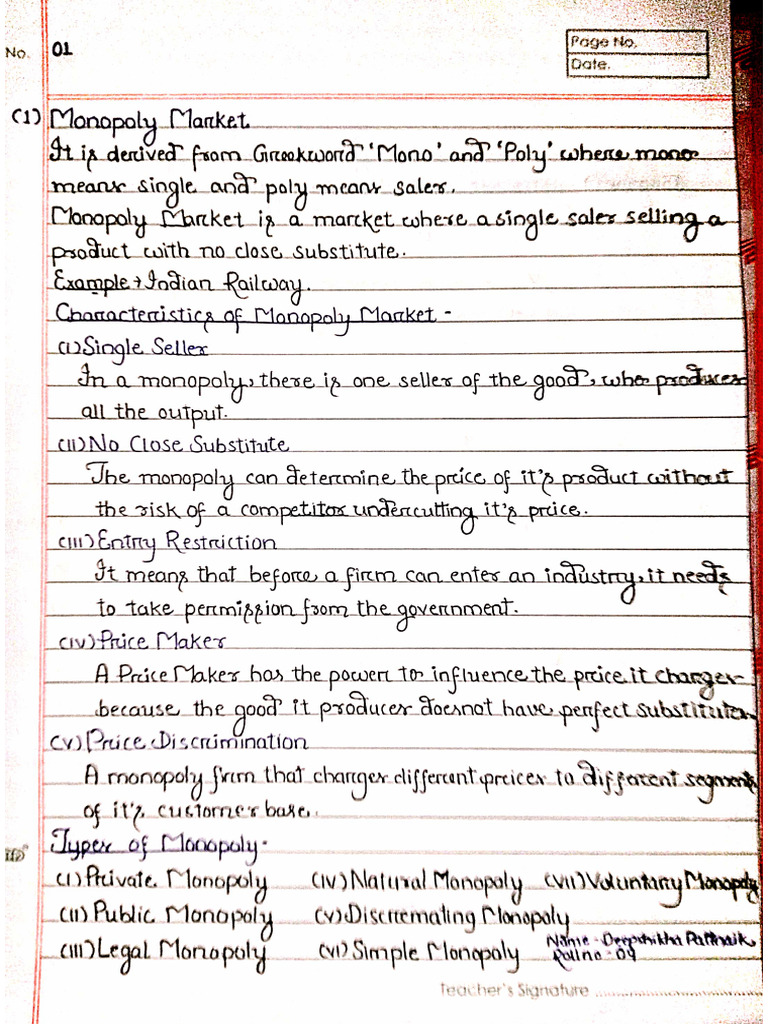 No. 01
Page No.
Date.
(1) Monopoly Market
It is derived from Greekword 'Mono' and 'Poly' where mono
means single and poly means saler.
Monopoly Market is a market where a single saler selling a
product with no close substitute.
Example → Indian Railway.
Characterristics of Monopoly Market -
(i) Single Seller
In a monopoly, there is one seller of the good, who produces
all the output.
(ii) No Close Substitute
The monopoly can determine the price of it's product without
the risk of a competitor undercutting it's price.
(iii) Entry Restriction
It means that before a firm can enter an industry, it needs
to take permission from the government.
(iv) Price Maker
A Price Maker has the power to influence the price it charges
because the good it produces doesnot have perfect substitutes
(v) Price Discrimination
A monopoly firm that charges different prices to different segments
of it's customer base.
Types of Monopoly -
(i) Private Monopoly (iv) Natural Monopoly (vii) Voluntary Monopoly
(ii) Public Monopoly (v) Discremating Monopoly
(iii) Legal Monopoly (vi) Simple Monopoly
Name - Deepshikha Pattnaik
Roll no - 09
Teacher's Signature